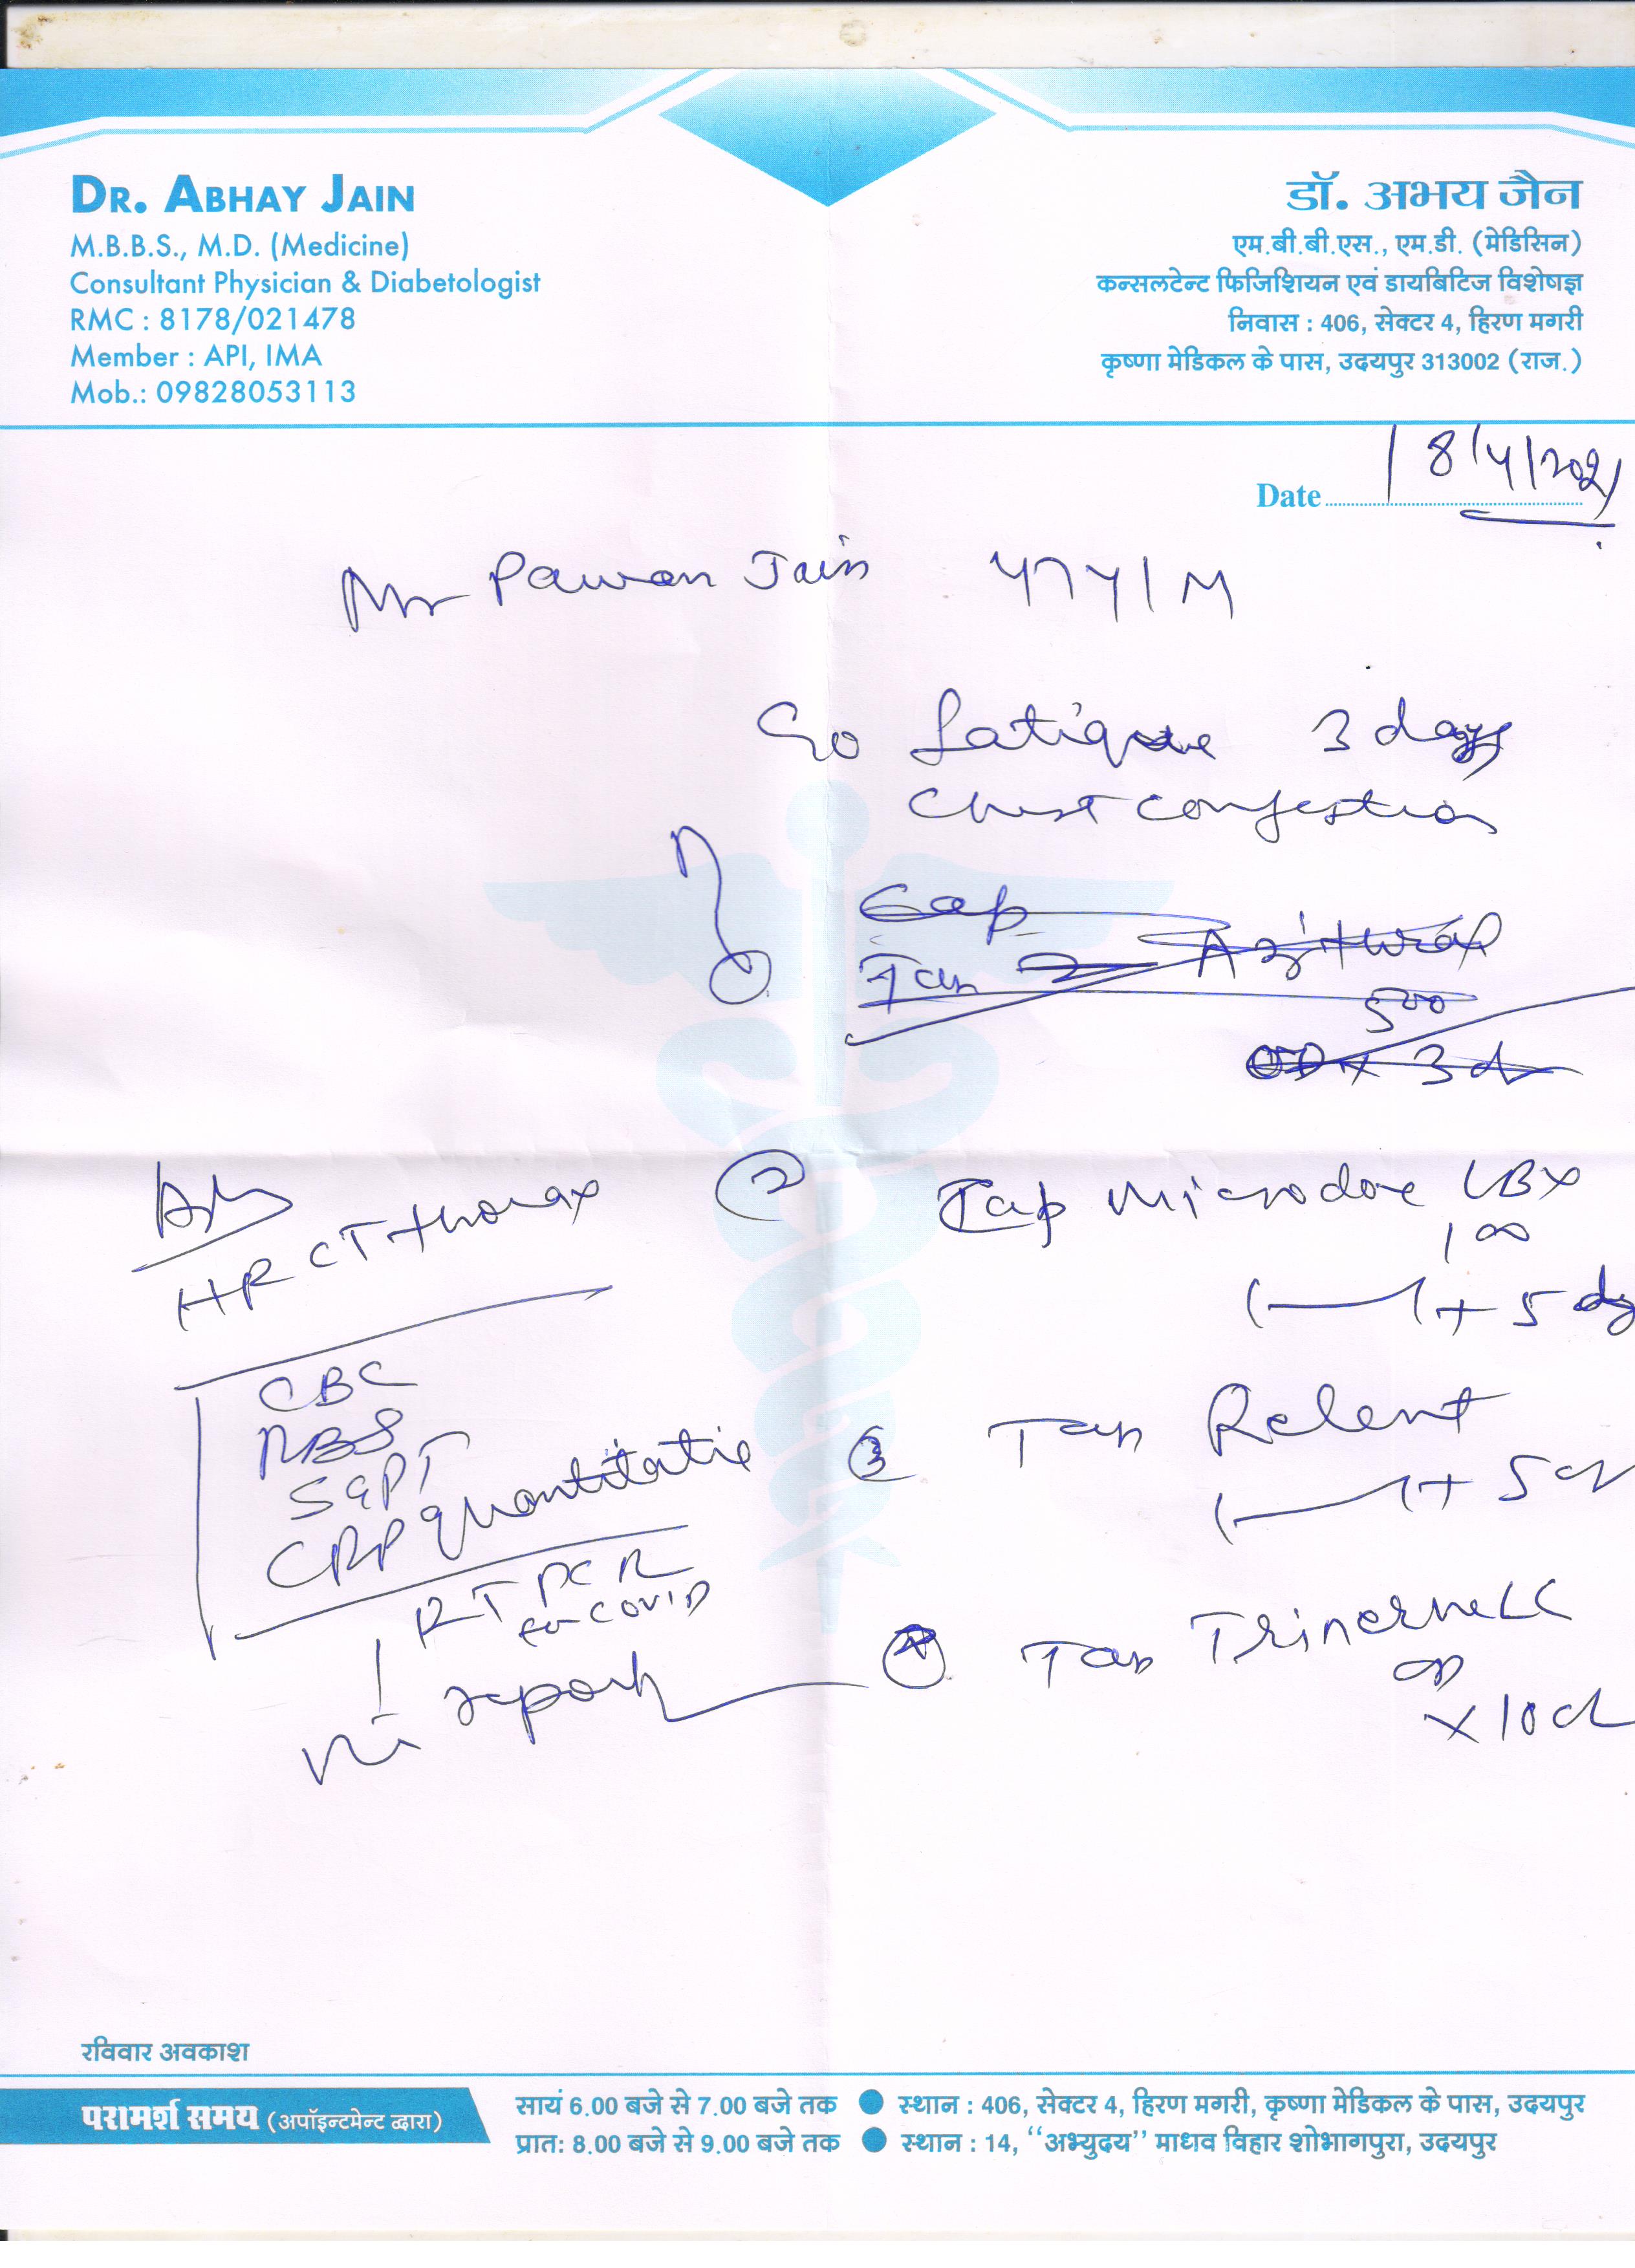 DR. ABHAY JAIN
M.B.B.S., M.D. (Medicine)
Consultant Physician & Diabetologist
RMC : 8178/021478
Member : API, IMA
Mob.: 09828053113
डॉ. अभय जैन
एम.बी.बी.एस., एम.डी. (मेडिसिन)
कन्सलटेन्ट फिजिशियन एवं डायबिटिज विशेषज्ञ
निवास : 406, सेक्टर 4, हिरण मगरी
कृष्णा मेडिकल के पास, उदयपुर 313002 (राज.)
Date 18/4/2021
Mr Pawan Jain 47Y/M
C/o fatigue 3 days
Chest congestion
Cap
Tab
500
OD x 3 d
Adv
HRCT thorax
CBC
RBS
SGPT
CRP quantitative
RT PCR
for COVID
report
2 Cap Microdox LBX
100
1-1 + 5 dy
3 Tab Relent
1-1 + 5 d
4 Tab Trinerve LC
OD
x 10 d
रविवार अवकाश
परामर्श समय (अपॉइन्टमेन्ट द्वारा)
सायं 6.00 बजे से 7.00 बजे तक ● स्थान : 406, सेक्टर 4, हिरण मगरी, कृष्णा मेडिकल के पास, उदयपुर
प्रात: 8.00 बजे से 9.00 बजे तक ● स्थान : 14, ‘‘अभ्युदय’’ माधव विहार शोभागपुरा, उदयपुर